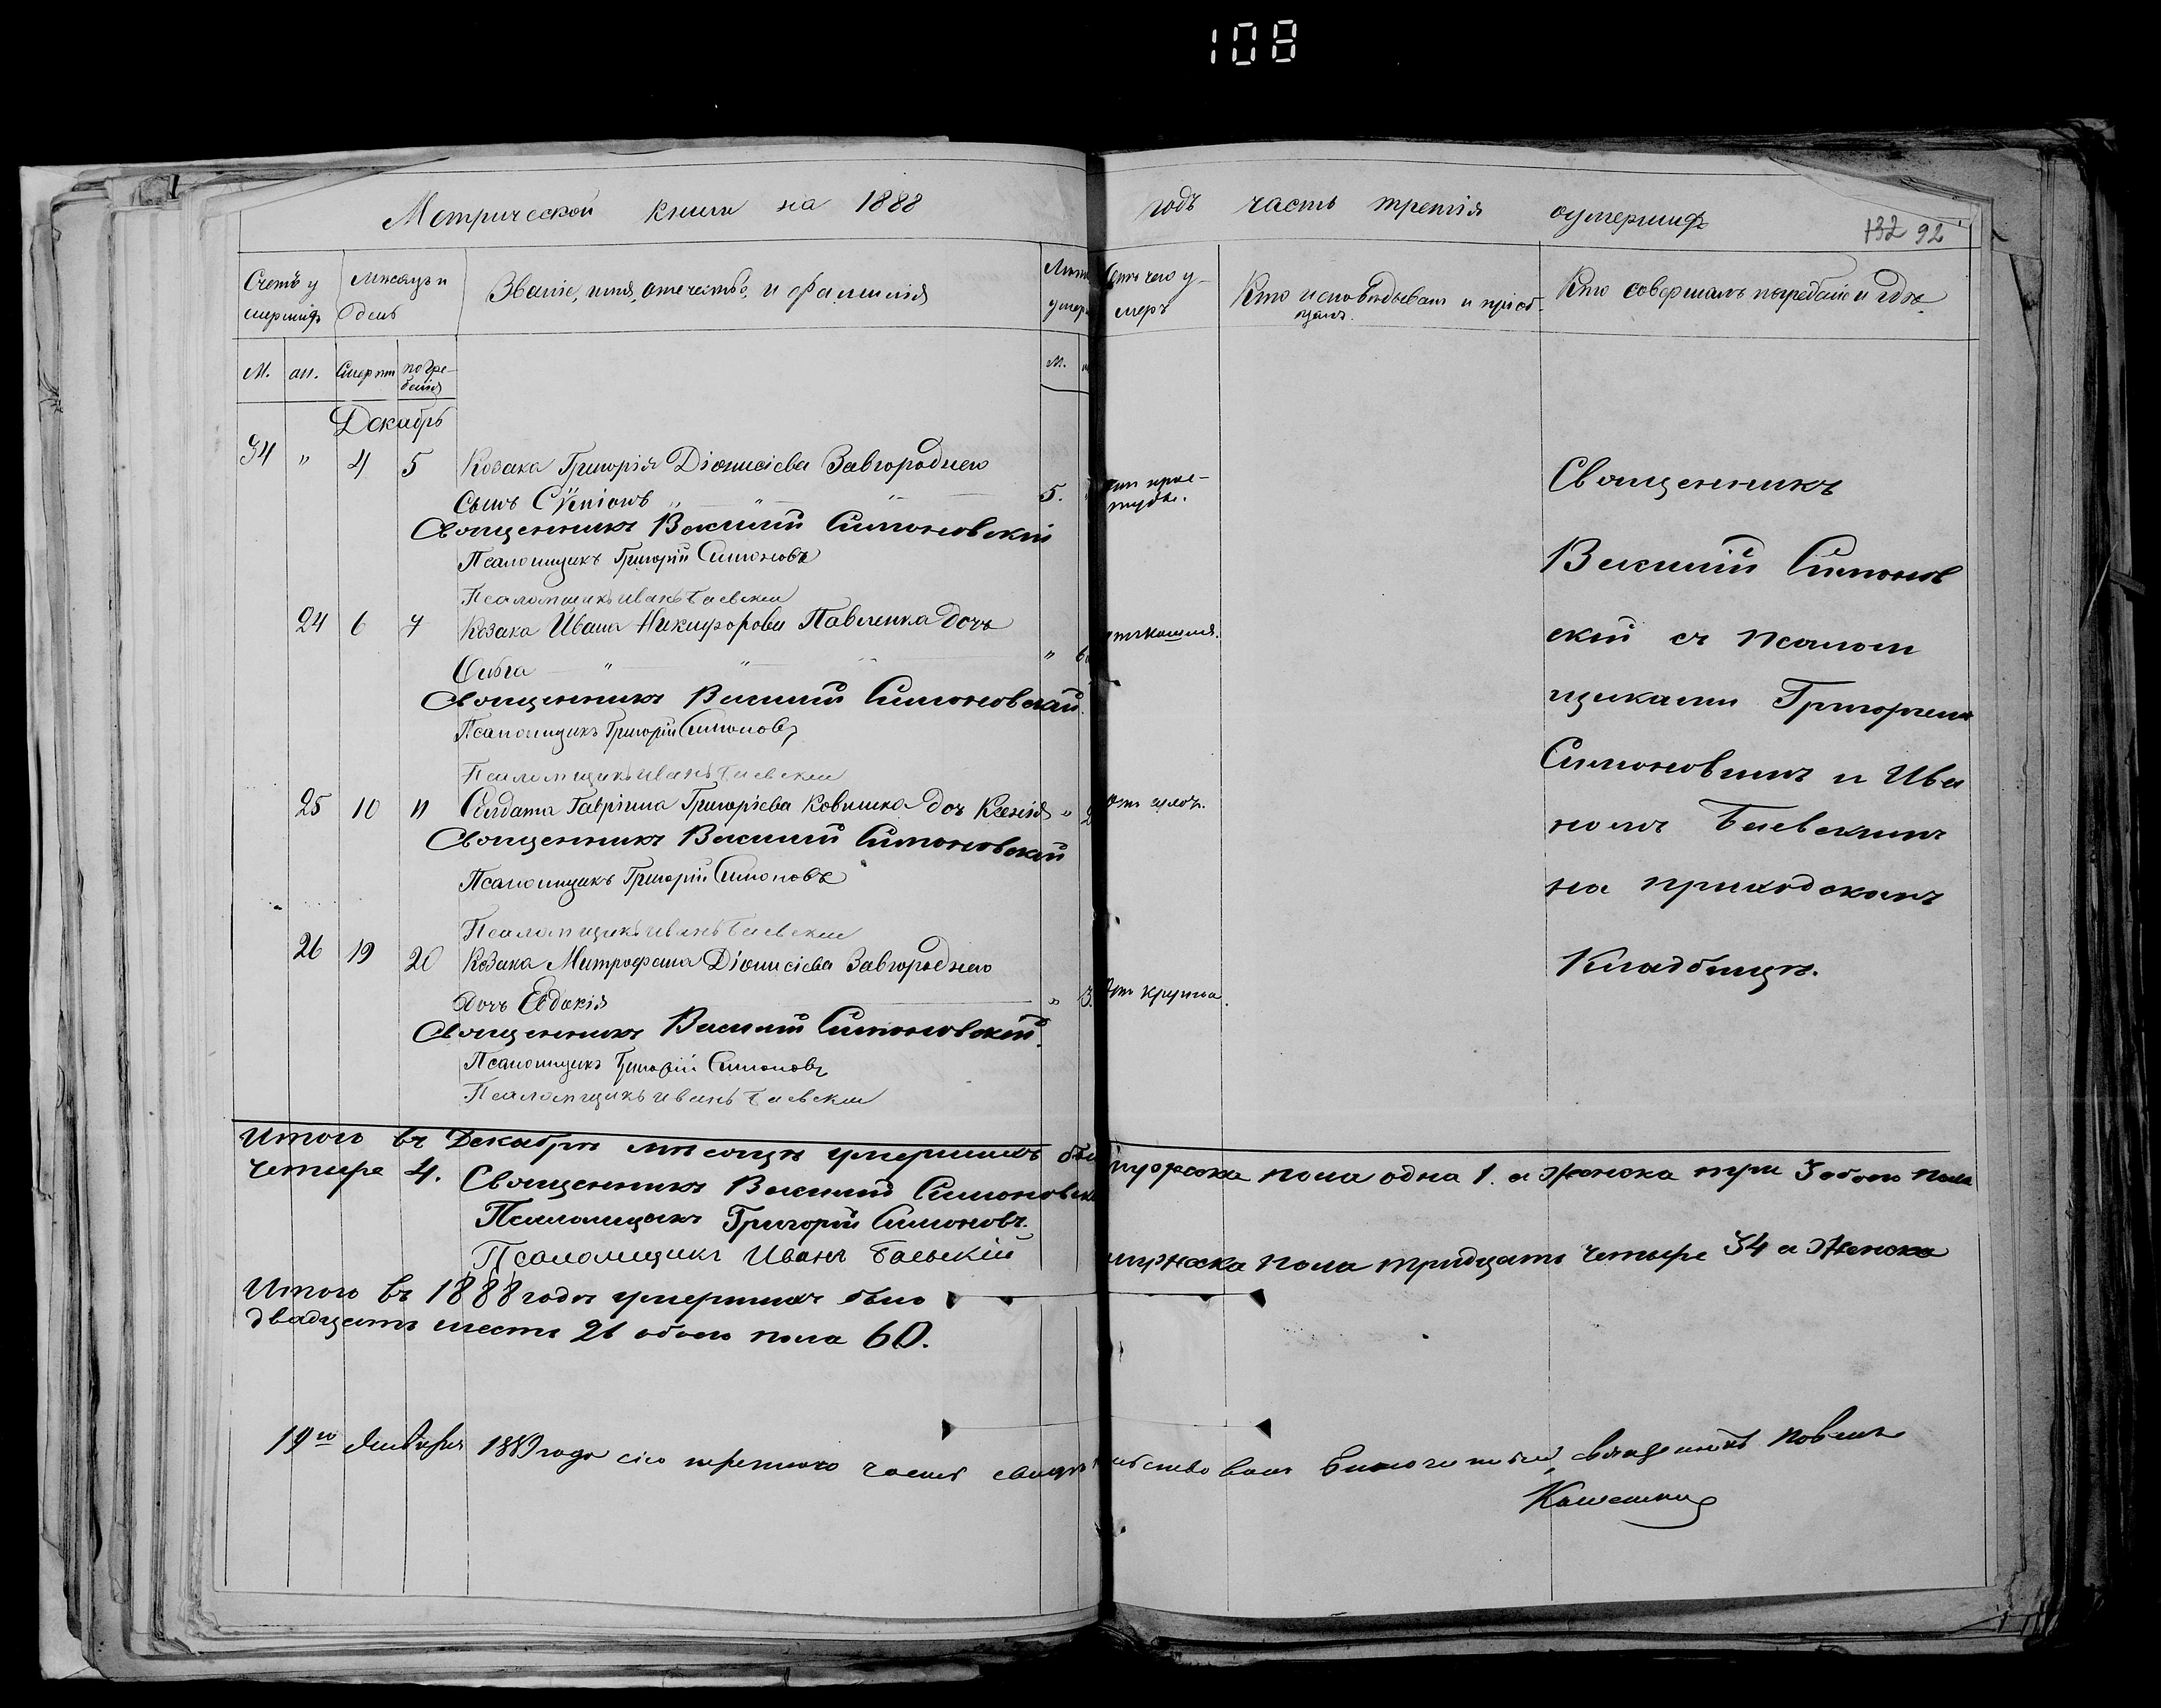 108
Метрической книги на 1888 годъ часть третія оумершихъ
132 92
Счетъ умершихъ
Мѣсяцъ и день
Званіе, имя, отечество, и фамилія
Лѣта умер
Отъ чего умеръ
Кто исповѣдывалъ и пріобщалъ.
Кто совершалъ погребеніе и гдѣ
М. Ж. Смерти погребенія
М.
Декабрь
34 " 4 5 Козака Григорія Діонисіева Завгороднего
Сынъ Сѵмеонъ " " " 5. простуды.
Священникъ Василій Симоновскій
Псаломщикъ Григорій Симоновъ
Псаломщикъ Иванъ Баевскій
24 6 7 Козака Ивана Никифорова Павленка дочь
Ольга " " " " отъ кашля.
Священникъ Василій Симоновскій.
Псаломщикъ Григорій Симоновъ
Псаломщикъ Иванъ Баевскій
25 10 11 Солдата Гавріила Григоріева Ковшика дочь Ксенія " 2 отъ
Священникъ Василій Симоновскій
Псаломщикъ Григорій Симоновъ
Псаломщикъ Иванъ Баевскій
26 19 20 Козака Митрофана Діонисіева Завгороднего
Дочь Евдокія " 3. Отъ крупа.
Священникъ Василій Симоновскій.
Псаломщикъ Григорій Симоновъ
Псаломщикъ Иванъ Баевскій
Священникъ
Василій Симонов
скій съ псалом
щиками Григоріемъ
Симоновымъ и Ива
номъ Баевскимъ
на приходскомъ
Кладбищѣ.
Итого въ Декабрѣ мѣсяцѣ умершихъ было мужска пола одна 1. а женска три 3 обоего пола
четыре 4. Священникъ Василій Симоновскій
Псаломщикъ Григорій Симоновъ.
Псаломщикъ Иванъ Баевскій
Итого въ 1888 годѣ умершихъ было мужска пола тридцать четыре 34 а женска
двадцать шесть 26 обоего пола 60.
19го Января 1889 года сію метрики часть свидѣтельствовалъ Благочинный, священникъ Павелъ